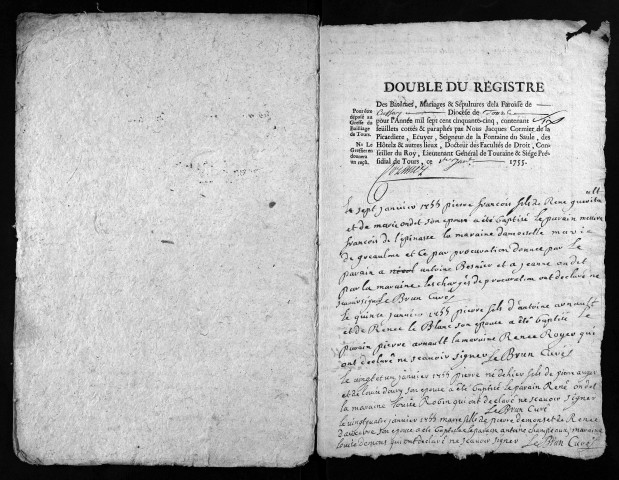 DOUBLE DU RÉGISTRE
Des Batêmes, Mariages & Sépultures dela Paroisse de
Diocése de Tours
pour l'Année mil sept cent cinquante-cinq, contenant
feuillets cottés & paraphés par Nous Jacques Cormier de la
Picardiere, Ecuyer, Seigneur de la Fontaine du Saule, des
Hôtels & autres lieux, Docteur des Facultés de Droit, Con-
seiller du Roy, Lieutenant Général de Touraine & Siége Pré-
sidial de Tours, ce 1755.
Pour être
déposé au
Greffe du
Bailliage
de Tours.
Nª Le
Greffier en
donnera
un reçû.
Cormier
Le sept janvier 1755 pierre francois fils de René
et de marie ondet son epouse a été baptisé le parain messire
francois de l'epinasse la maraine damoiselle marie
de et ce par procuration donnee par le
parain a antoine Besnier et a jeanne ondet
par la maraine les chargés de procuration ont declaré ne
scavoir signer Le Brun Curé
Le quinze janvier 1755 pierre fils d'antoine arnault
et de Renee le Blanc son epouse a été baptisé le
parain pierre arnault la maraine Renee Royer qui
ont declaré ne scavoir signer Le Brun Curé
Le vingt et un janvier 1755 pierre né de hier fils de pierre
et de son epouse a été baptisé le parain René ondet
la maraine Louise Robin qui ont declaré ne scavoir signer
Le Brun Curé
le vingt quatre janvier 1755 marie fille de pierre demons et de Renee
son epouse a été baptisee le parain antoine maraine
Louise demons qui ont declaré ne scavoir signer Le Brun Curé